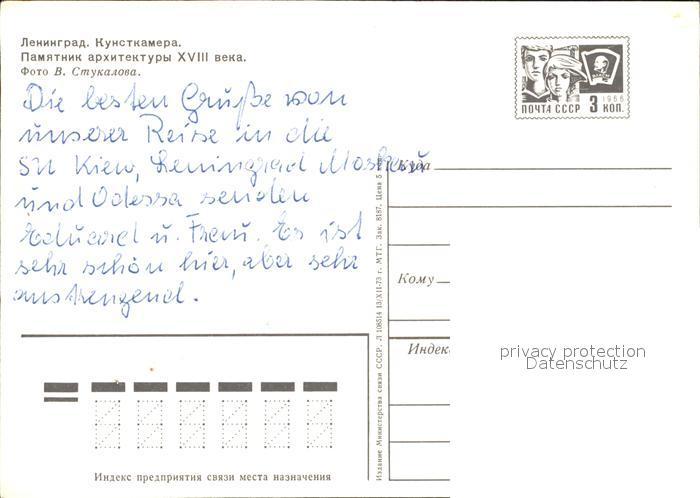 Ленинград. Кунсткамера.
Памятник архитектуры XVIII века.
Фото В. Стукалова.
Die besten Grüße von
unserer Reise in die
SU Kiew, Leningrad Moskau
und Odessa senden
Eduard u. Frau. Es ist
sehr schön hier, aber sehr
anstrengend.
ПОЧТА СССР 3 КОП.
1966
Куда
Кому
Индекс
privacy protection
Datenschutz
Издание Министерства связи СССР. Л 108514 13/XII-73 г. МТГ. Зак. 8187. Цена 5
Индекс предприятия связи места назначения